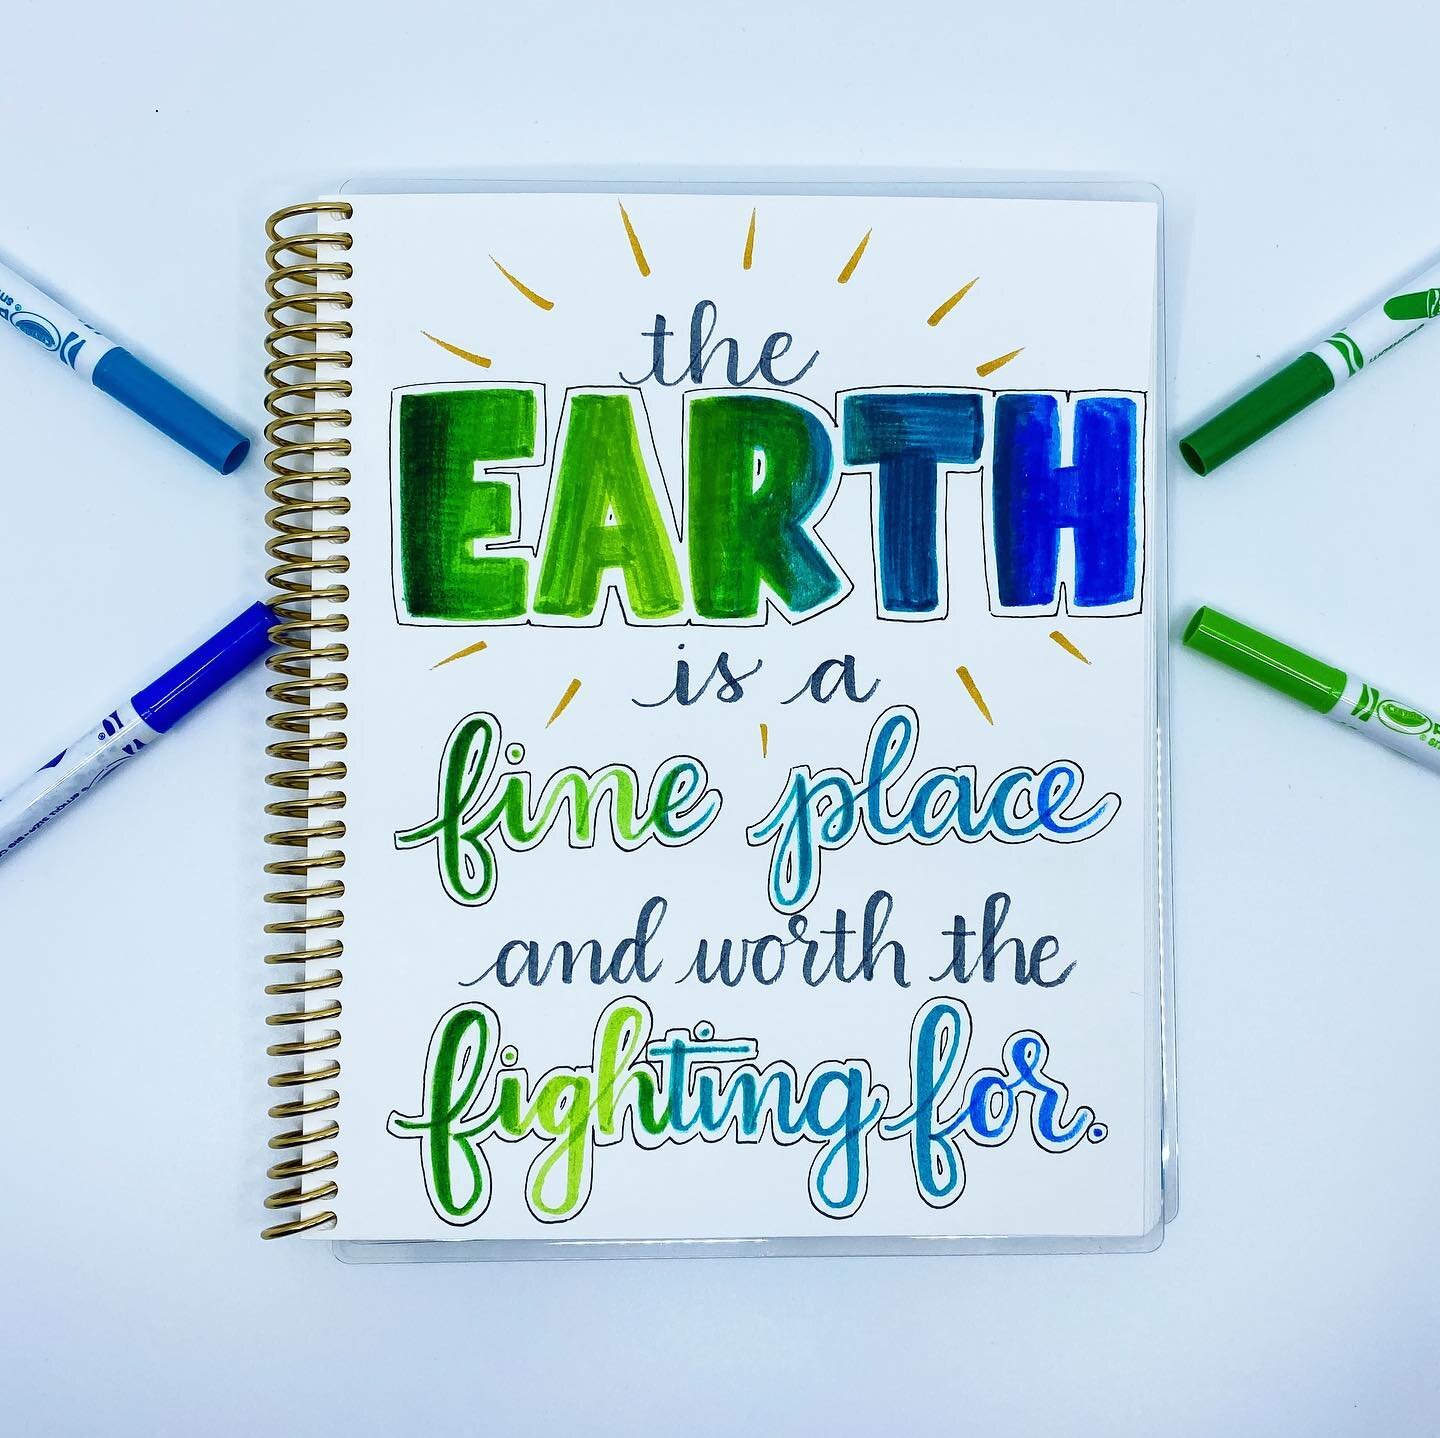 the
EARTH
is a
fine place
and worth the
fighting for.